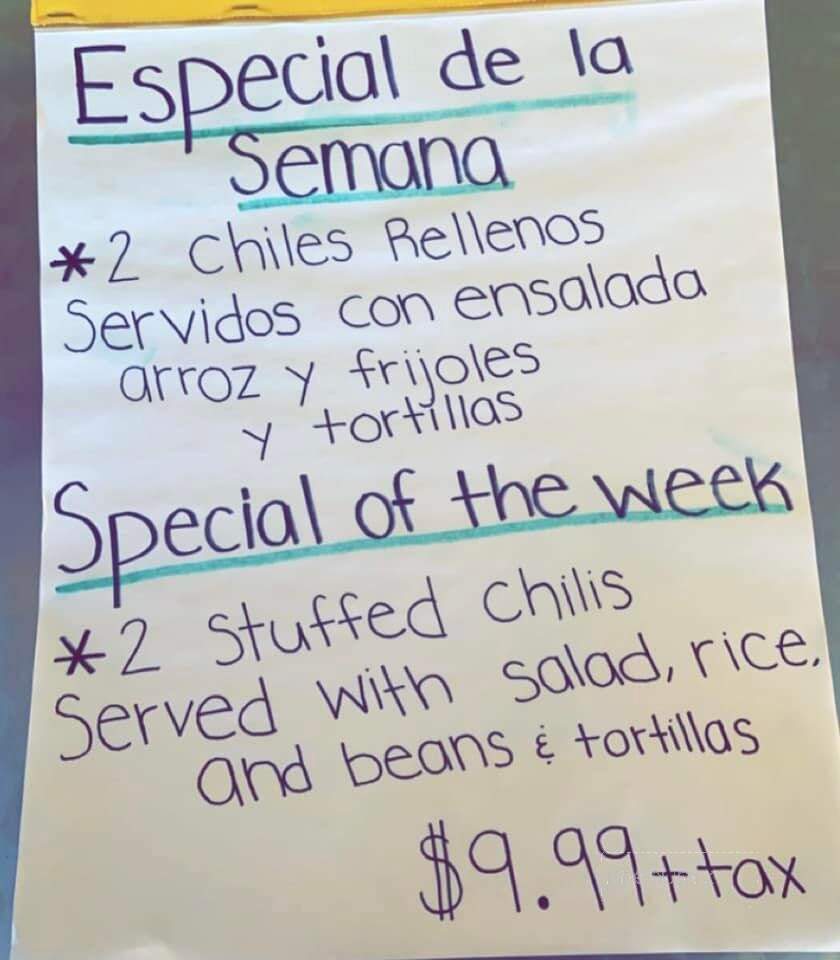 Especial de la
Semana
*2 Chiles Rellenos
Servidos con ensalada
arroz y frijoles
y tortillas
Special of the week
*2 Stuffed Chilis
Served with salad, rice,
and beans & tortillas
$9.99++tax